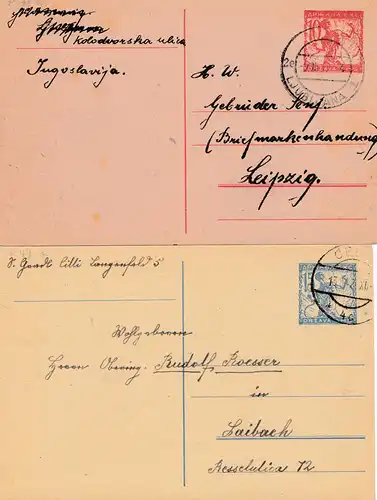 Kolodvorska ulica
Jugoslavija.
10
LJUBLJANA
H. W.
Gebrüder Senf.
(Briefmarkenhandlung)
Leipzig.
S. Gerdt Cilli Langenfeld 5
15
Wohlgeboren
Herrn Obering. Rudolf Roesser
in
Laibach
Resselulica 12